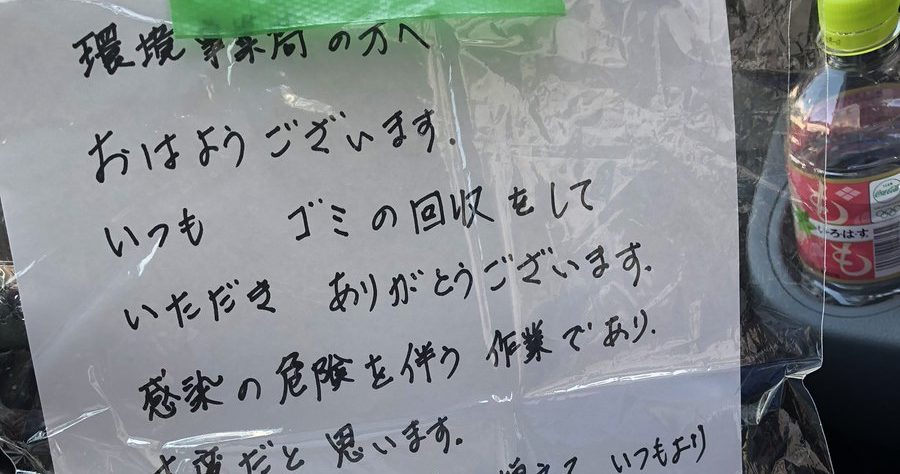 環境事業局の方へ
おはようございます.
いつも ゴミの回収をして
いただき ありがとうございます.
感染の危険を伴う 作業であり.
大変だと思います.
増えて いつもより
もも
いろはす